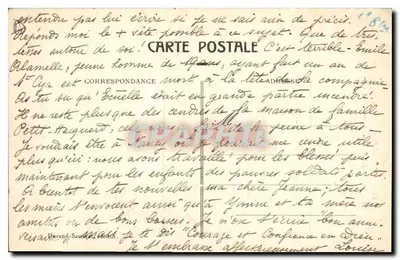 entendre pas lui écrire si je ne sais rien de précis.
Réponds moi le + vite possible à ce sujet. Que de tris-
tesses autour de soi! C'est terrible. Emile
CARTE POSTALE
jeune homme de ans, ayant fait un an de
St Cyr est mort à la tête de la compagnie.
CORRESPONDANCE
As tu su qu' était en grande partie incendié.
Il ne reste plus que des cendres de la maison de famille
Petit. de la peine à tous.
Je voudrais être à où je pourrais me rendre utile
plus qu'ici: nous avons travaillé pour les blessés puis
maintenant pour les enfants des pauvres soldats partis.
A bientôt de tes nouvelles ma chère Jeanne; tous
les miens t'envoient ainsi qu'à Yvonne et ta mère nos
amitiés ou de bons baisers. Je n'ose t'écrire bon anni-
versaire, mais je te dis "Courage et Confiance en Dieu"
Je t'embrasse affectueusement Louise